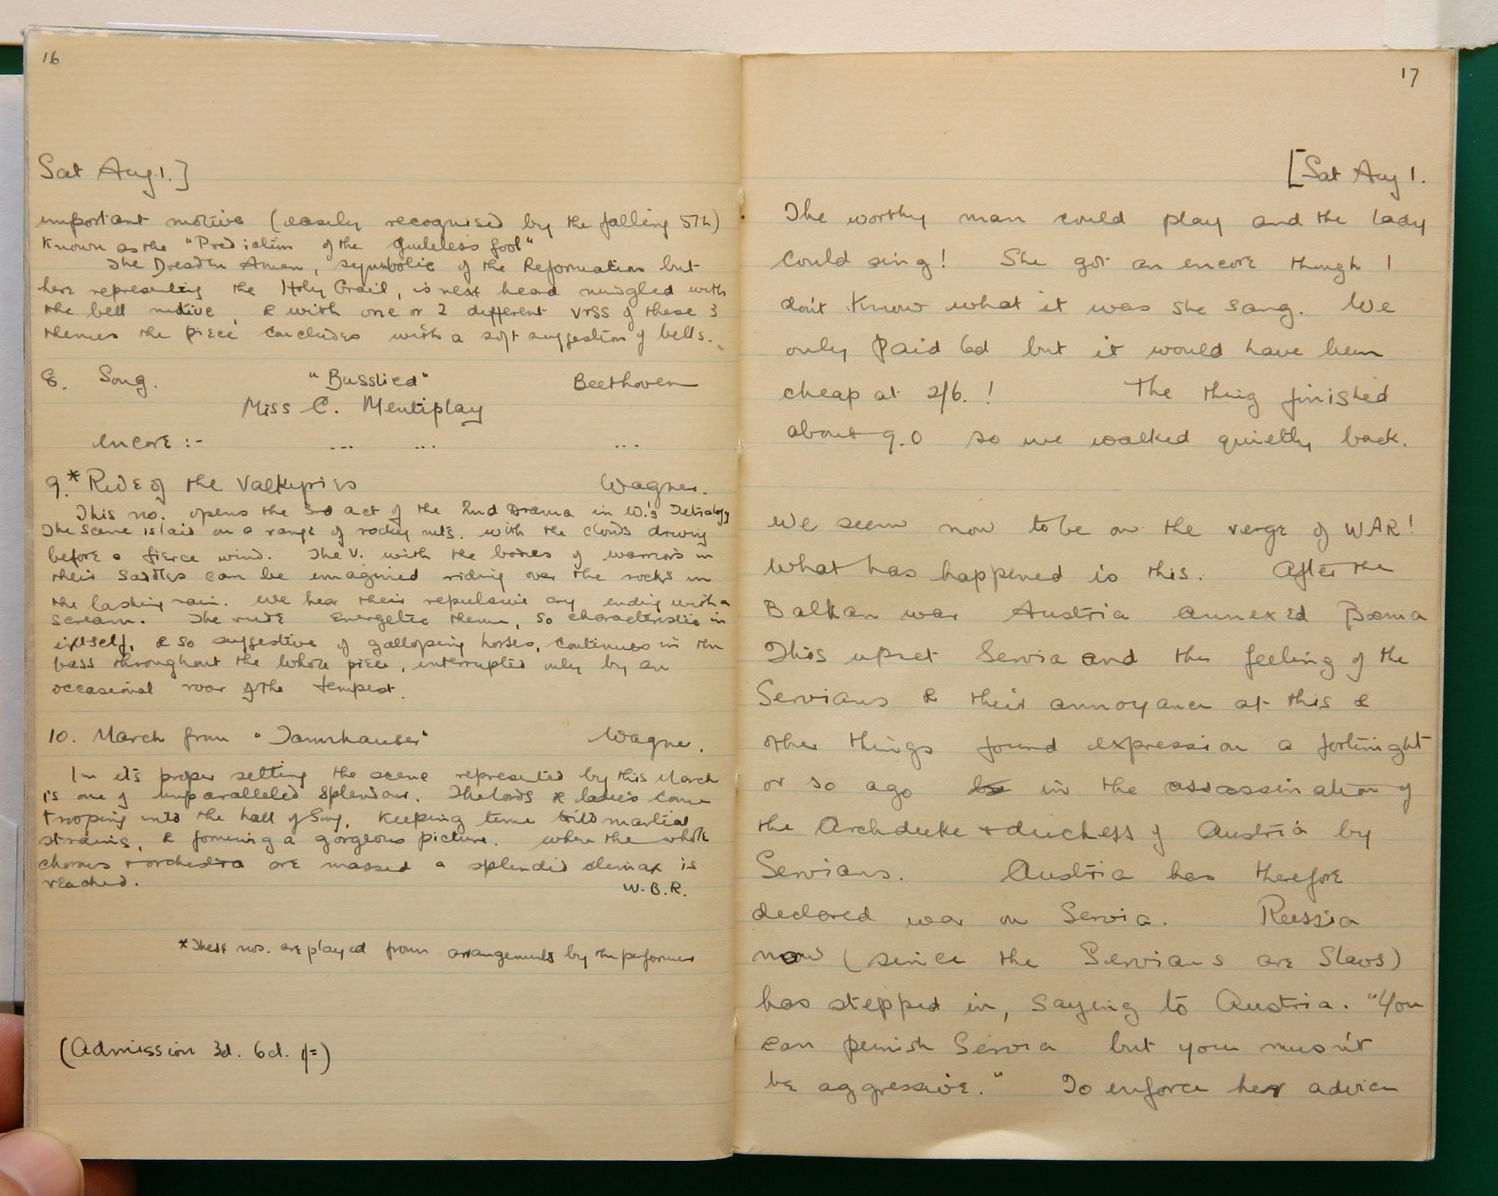 16
Sat Aug 1.]
important motive (easily recognised by the falling 5th)
Known as the "Prediction of the guileless fool"
The Dresden Amen, symbolic of the Reformation but
here representing the Holy Grail, is next heard mingled with
the bell motive, & with one or 2 different vrss of these 3
themes the piece concludes with a soft suggestion of bells.
8. Song. "Busslied" Beethoven
Miss C. Mentiplay
encore :- ... ... ...
9.* Ride of the Valkyries Wagner.
This no. opens the 3rd act of the 2nd Drama in W.'s Tetralogy
The scene is laid on a range of rocky mts. with the clouds driving
before a fierce wind. The V. with the bodies of warriors in
their saddles can be imagined riding over the rocks in
the lashing rain. We hear their repulsive cry ending with a
scream. The rude energetic theme, so characteristic in
itself, & so suggestive of galloping horses, continues in the
bass throughout the whole piece, interrupted only by an
occasional roar of the tempest.
10. March from "Tannhauser" Wagner.
In its proper setting the scene represented by this March
is one of unparalleled splendour. The lords & ladies come
trooping into the hall of Song, keeping time to martial
strains, & forming a gorgeous picture. When the whole
chorus + orchestra are massed a splendid climax is
reached.
W.B.R.
*These nos. are played from arrangements by the performer
(Admission 3d. 6d. 1/=)
17
[Sat Aug 1.
The worthy man could play and the lady
could sing! She got an encore though I
don't know what it was she sang. We
only paid 6d but it would have been
cheap at 2/6. ! The thing finished
about 9.0 so we walked quietly back.
We seem now to be on the verge of WAR!
What has happened is this. After the
Balkan war Austria annexed Bosnia
This upset Servia and the feeling of the
Servians & their annoyance at this &
other things found expression a fortnight
or so ago in the assassination of
the Archduke + duchess of Austria by
Servians. Austria has therefore
declared war on Servia. Russia
now (since the Servians are Slavs)
has stepped in, saying to Austria. "You
can punish Servia but you musn't
be aggressive." To enforce her advice